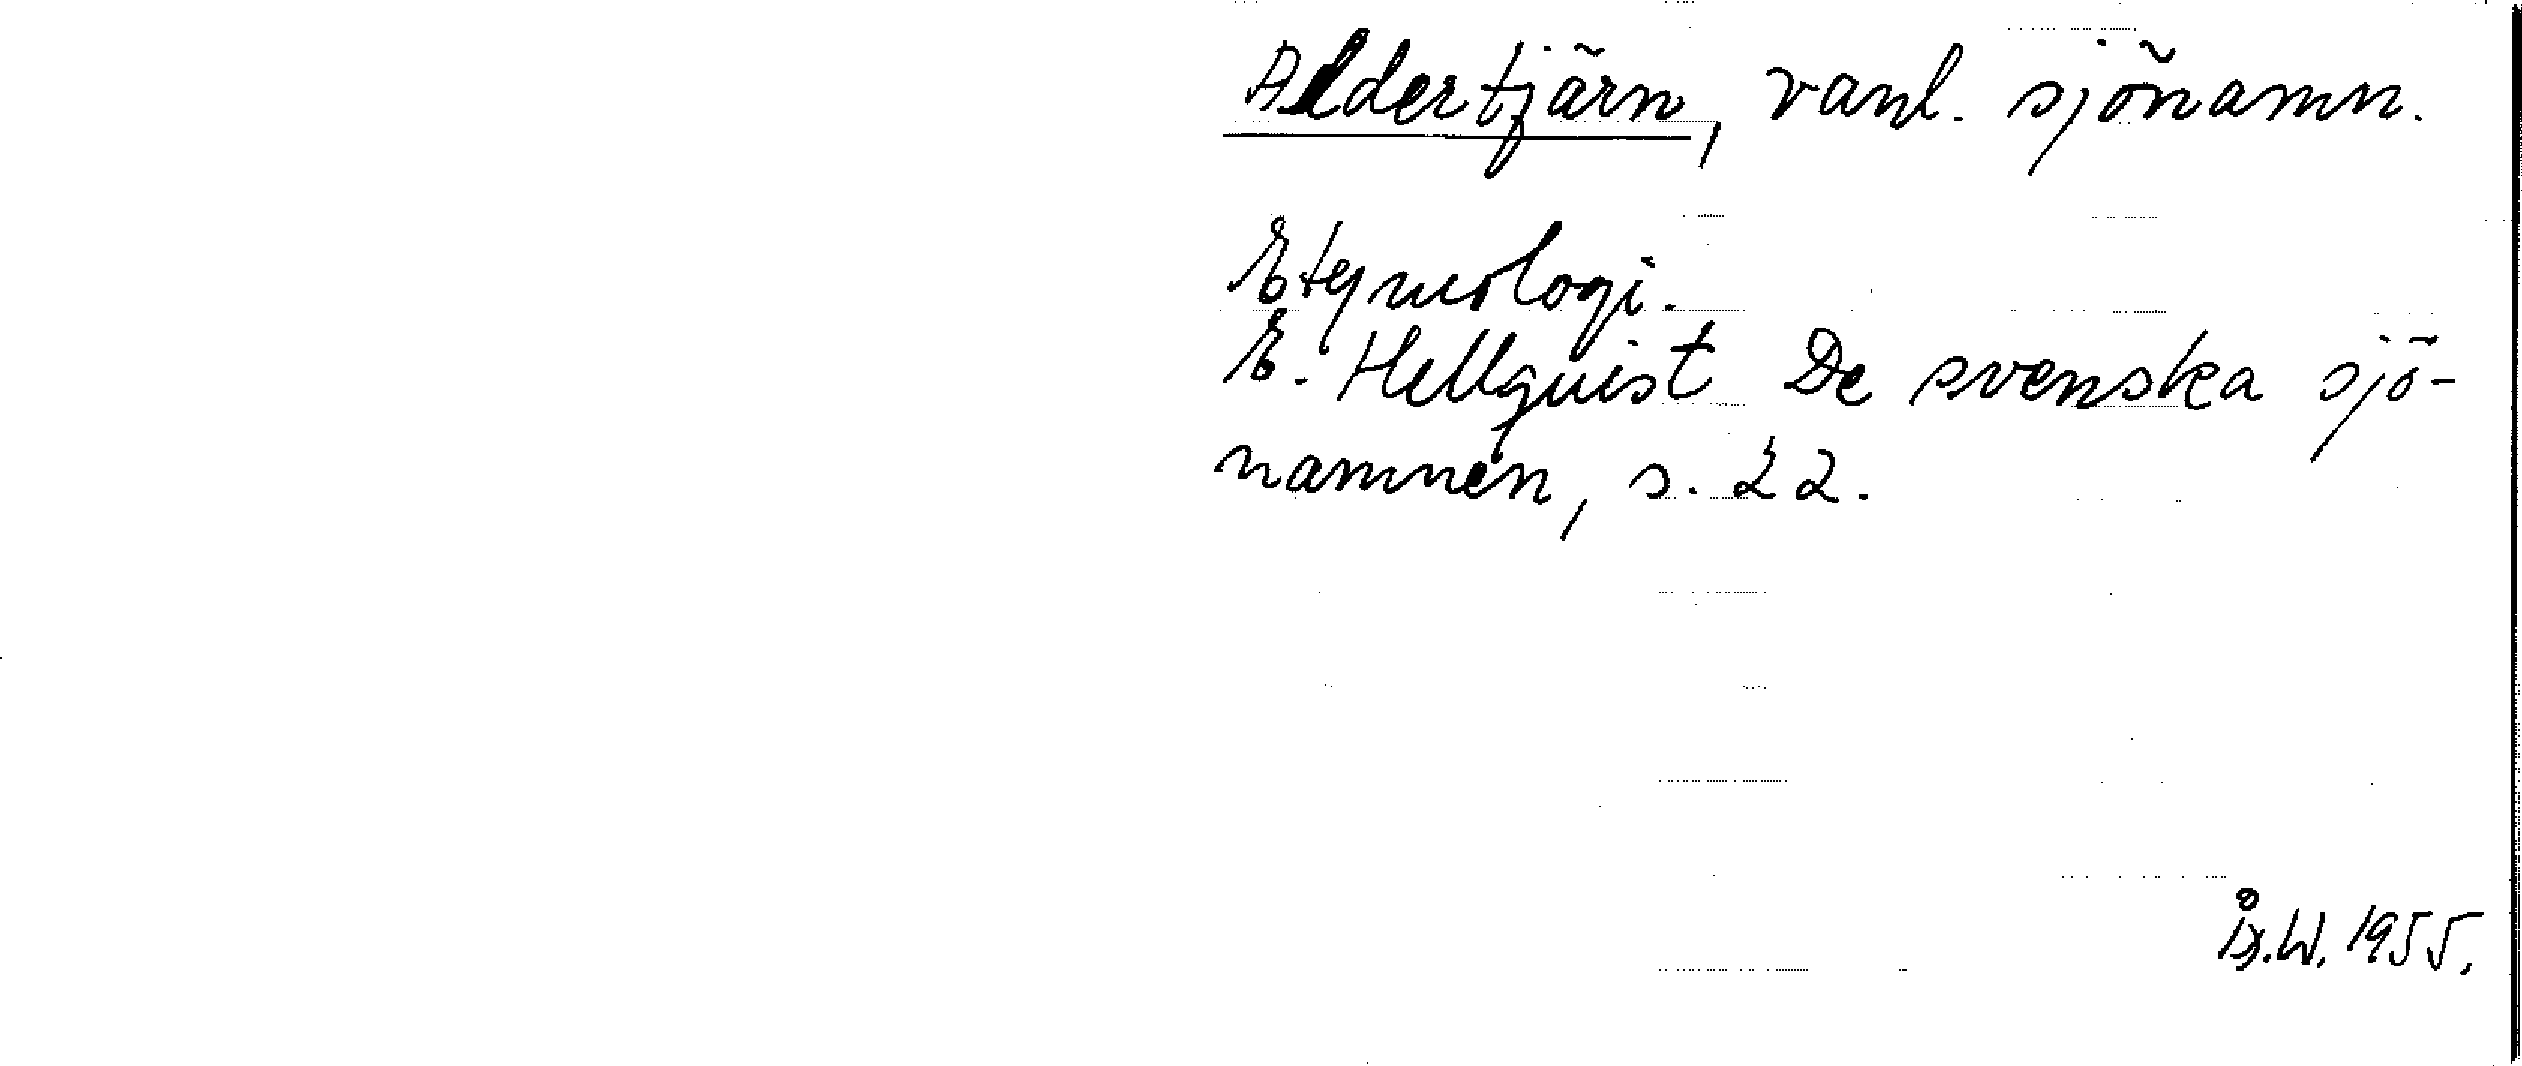 Aldertjärn, vanl. sjönamn.
Etymologi.
E. Hellquist De svenska sjö-
namnen, s. 22.
Å.W. 1955.